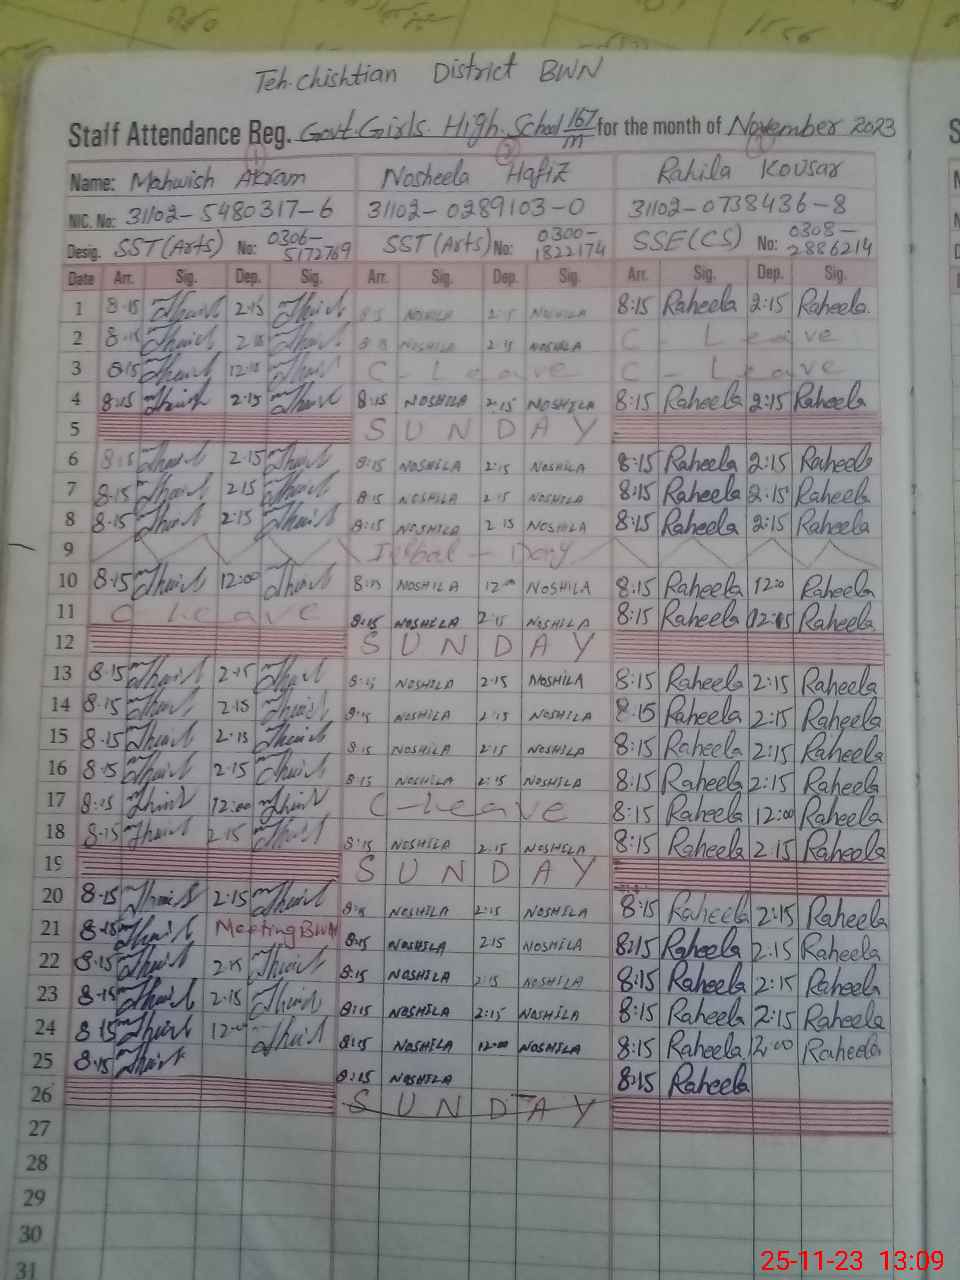 Teh. Chishtian District BWN
Staff Attendance Reg. Govt. Girls. High. School 167/m for the month of November 2023
1 2 3
Name: Mahwish Akram Nosheela Hafiz Rahila Kousar
NIC. No: 31102-5480317-6 31102-0289103-0 31102-0738436-8
Desig. SST (Arts) No: 0306-5172769 SST (Arts) No: 0300-1822174 SSE (CS) No: 0308-2886214
Date Arr. Sig. Dep. Sig. Arr. Sig. Dep. Sig. Arr. Sig. Dep. Sig.
1 8·15 2·15 8:15 NOSHILA 2:15 NOSHILA 8:15 Raheela 2:15 Raheela.
2 8·15 2·15 8:15 NOSHILA 2:15 NOSHILA C - Leave
3 8·15 12:00 C - Leave C - Leave
4 8:15 2·15 8:15 NOSHILA 2:15 NOSHILA 8:15 Raheela 2:15 Raheela
5 SUNDAY
6 8:15 2·15 8:15 NOSHILA 2:15 NOSHILA 8:15 Raheela 2:15 Raheela
7 8·15 2·15 8:15 NOSHILA 2:15 NOSHILA 8:15 Raheela 2:15 Raheela
8 8·15 2:15 8:15 NOSHILA 2:15 NOSHILA 8:15 Raheela 2:15 Raheela
9 Iqbal - Day
10 8·15 12:00 8:15 NOSHILA 12:00 NOSHILA 8:15 Raheela 12:00 Raheela
11 C Leave 8:15 NOSHILA 2:15 NOSHILA 8:15 Raheela Raheela.
12 SUNDAY
13 8·15 2·15 8:15 NOSHILA 2:15 NOSHILA 8:15 Raheela 2:15 Raheela
14 8·15 2·15 8:15 NOSHILA 2:15 NOSHILA 8·15 Raheela 2:15 Raheela
15 8·15 2·15 8:15 NOSHILA 2:15 NOSHILA 8:15 Raheela 2:15 Raheela
16 8·15 2·15 8:15 NOSHILA 2:15 NOSHILA 8:15 Raheela 2:15 Raheela
17 8:15 12:00 C - Leave 8:15 Raheela 12:00 Raheela
18 8·15 2·15 8:15 NOSHILA 2:15 NOSHILA 8:15 Raheela 2:15 Raheela
19 SUNDAY
20 8·15 2·15 8:15 NOSHILA 2:15 NOSHILA 8:15 Raheela 2:15 Raheela
21 8·15 Meeting BWN 8:15 NOSHILA 2:15 NOSHILA 8:15 Raheela 2:15 Raheela
22 8·15 2·15 8:15 NOSHILA 2:15 NOSHILA 8:15 Raheela 2:15 Raheela
23 8·15 2·15 8:15 NOSHILA 2:15 NOSHILA 8:15 Raheela 2:15 Raheela
24 8·15 12:00 8:15 NOSHILA 12:00 NOSHILA 8:15 Raheela 12:00 Raheela
25 8·15 8:15 NOSHILA 8:15 Raheela
26 SUNDAY
27
28
29
30
31
25-11-23 13:09